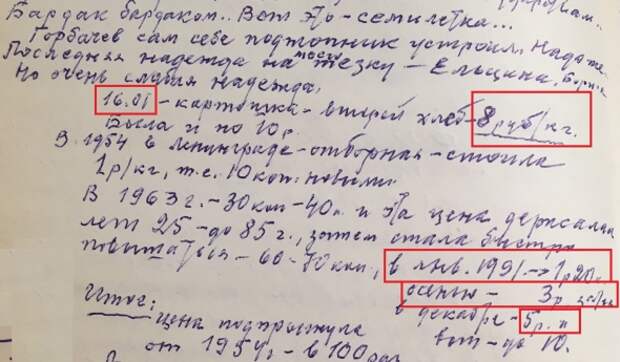 Бардак бардаком.. Вот это - семилетка...
Горбачев сам себе подтопник устроил. Надо же.
Последняя надежда на моего тезку - Ельцина, Бориса
Но очень слабая надежда.
16.01 - картошка - второй хлеб - 8 руб/кг.
Была и по 10р.
В 1954 в Ленинграде - отборная - стоила
1р/кг, т.е. 10коп. новыми
В 1963г. - 30коп - 40к. и эта цена держалась
лет 25 - до 85г., затем стала быстро
повышаться - 60-70коп, в янв. 1991 -> 1р20к.
осенью - 3р
в декабре - 5р. и
Итог:
вот - до 10.
цена подпрыгнула
от 1954г - в 100 раз